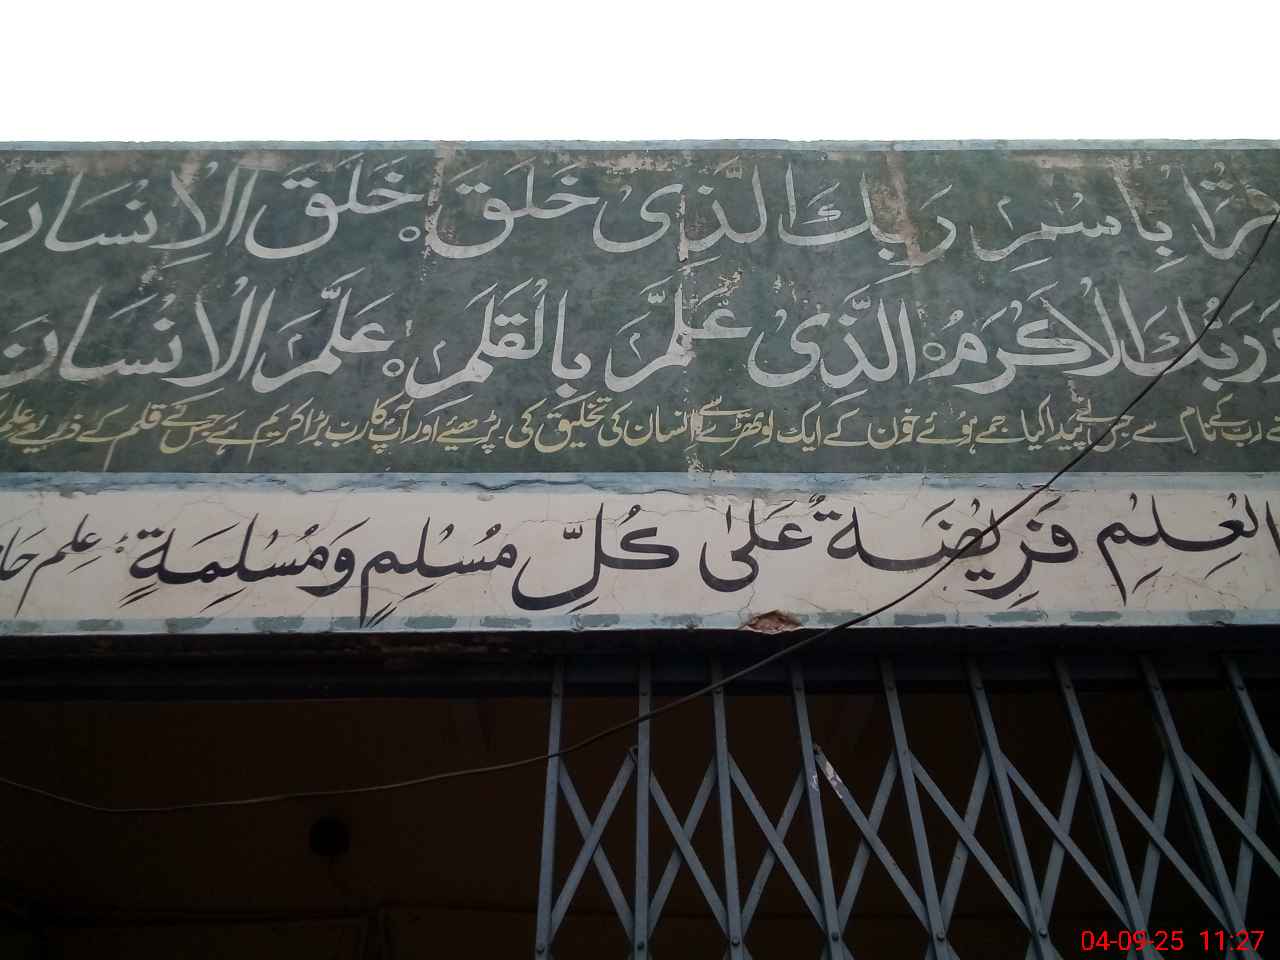 اقْرَا بِاسْمِ رَبِّكَ الَّذِىْ خَلَقَ خَلَقَ الْاِنْسَانَ
وَرَبُّكَ الْاَكْرَمُ الَّذِىْ عَلَّمَ بِالْقَلَمِ عَلَّمَ الْاِنْسَانَ
رب کے نام سے جس نے پیدا کیا جمے ہوئے خون کے ایک لوتھڑے سے انسان کی تخلیق کی پڑھیئے اور آپ کا رب بڑا کریم ہے جس نے قلم کے ذریعے علم
الْعِلْمِ فَرِيْضَةٌ عَلٰى كُلِّ مُسْلِمٍ وَمُسْلِمَةٍ علم
04-09-25 11:27